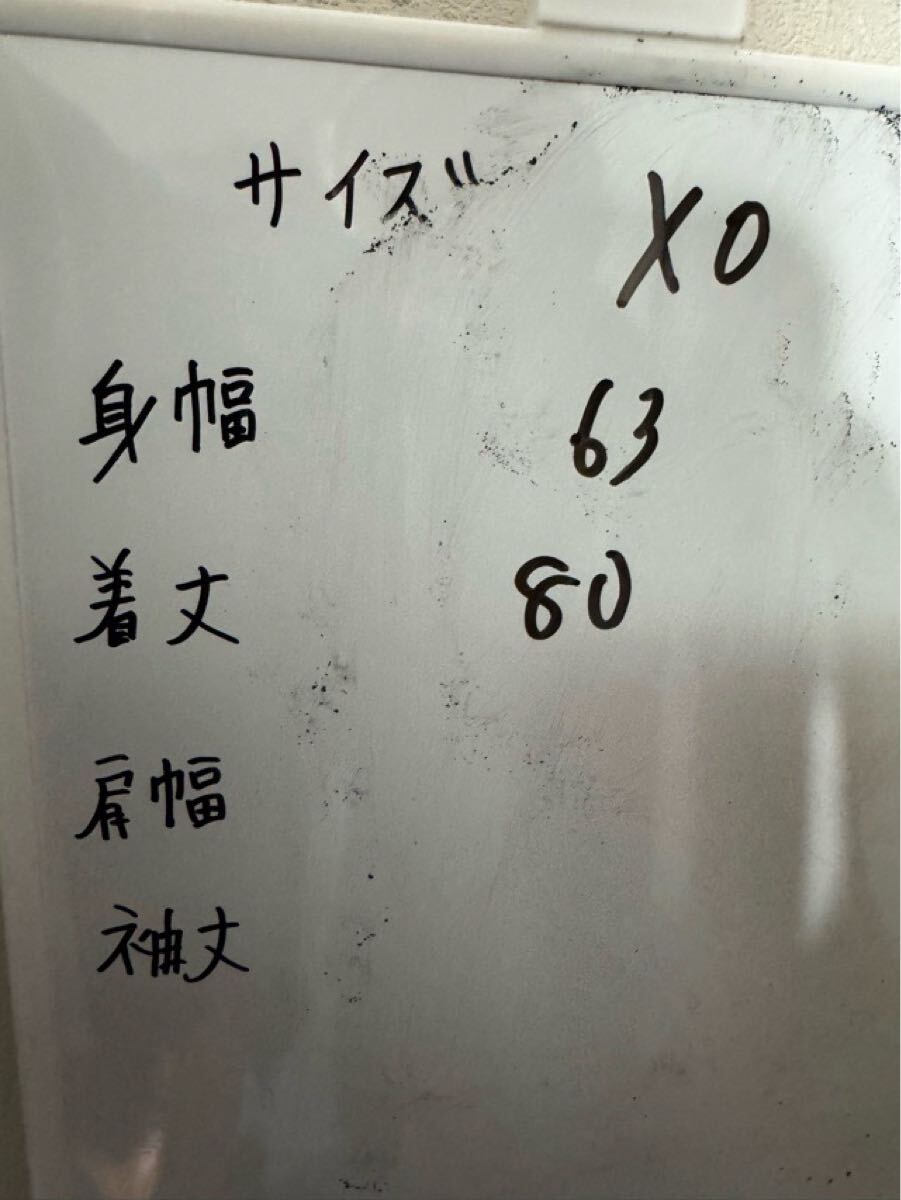 サイズ XO
身幅 63
着丈 80
肩幅
袖丈